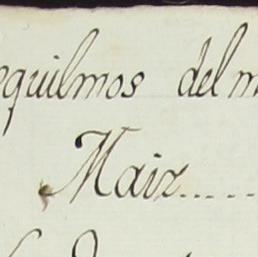 equilmos del m
Maiz.....